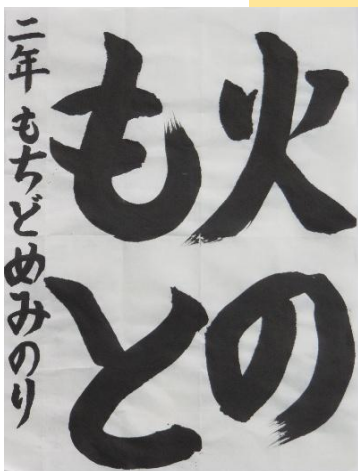 火の
もと
二年 もちどめみのり